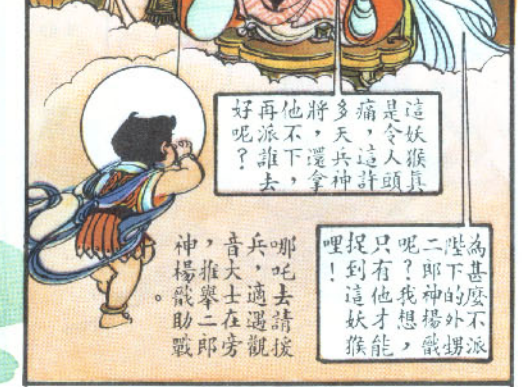 這妖猴眞
是令人頭
痛，這許
多天兵神
將，還拿
他不下，
再派誰去
好呢？
為甚麼不派
陛下的外甥
二郎神楊戩
呢？我想，
只有他才能
捉到這妖猴
哩！
哪吒去請援
兵，適遇觀
音大士在旁
，推舉二郎
神楊戩助戰
。